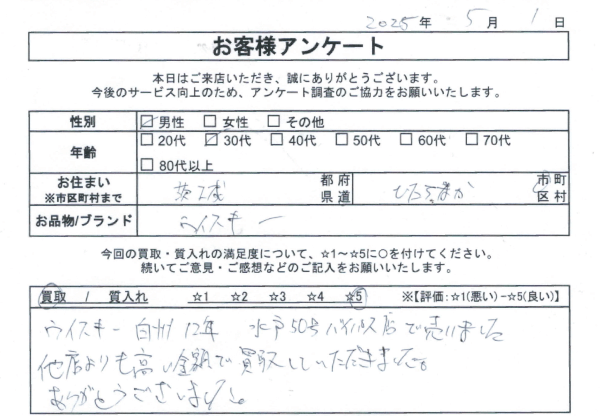 2025年 5月 1日
お客様アンケート
本日はご来店いただき、誠にありがとうございます。
今後のサービス向上のため、アンケート調査のご協力をお願いいたします。
性別 ☑男性 □女性 □その他
年齢 □20代 ☑30代 □40代 □50代 □60代 □70代
□80代以上
お住まい ※市区町村まで 茨城 都府県道 ひたちなか 市町区村
お品物/ブランド ウイスキー
今回の買取・質入れの満足度について、☆1～☆5に○を付けてください。
続いてご意見・ご感想などのご記入をお願いいたします。
買取 / 質入れ ☆1 ☆2 ☆3 ☆4 ☆5 ※【評価:☆1(悪い)−☆5(良い)】
ウイスキー 白州 12年 水戸50号バイパス店で売りました
他店よりも高い金額で買取していただきました。
ありがとうございました。